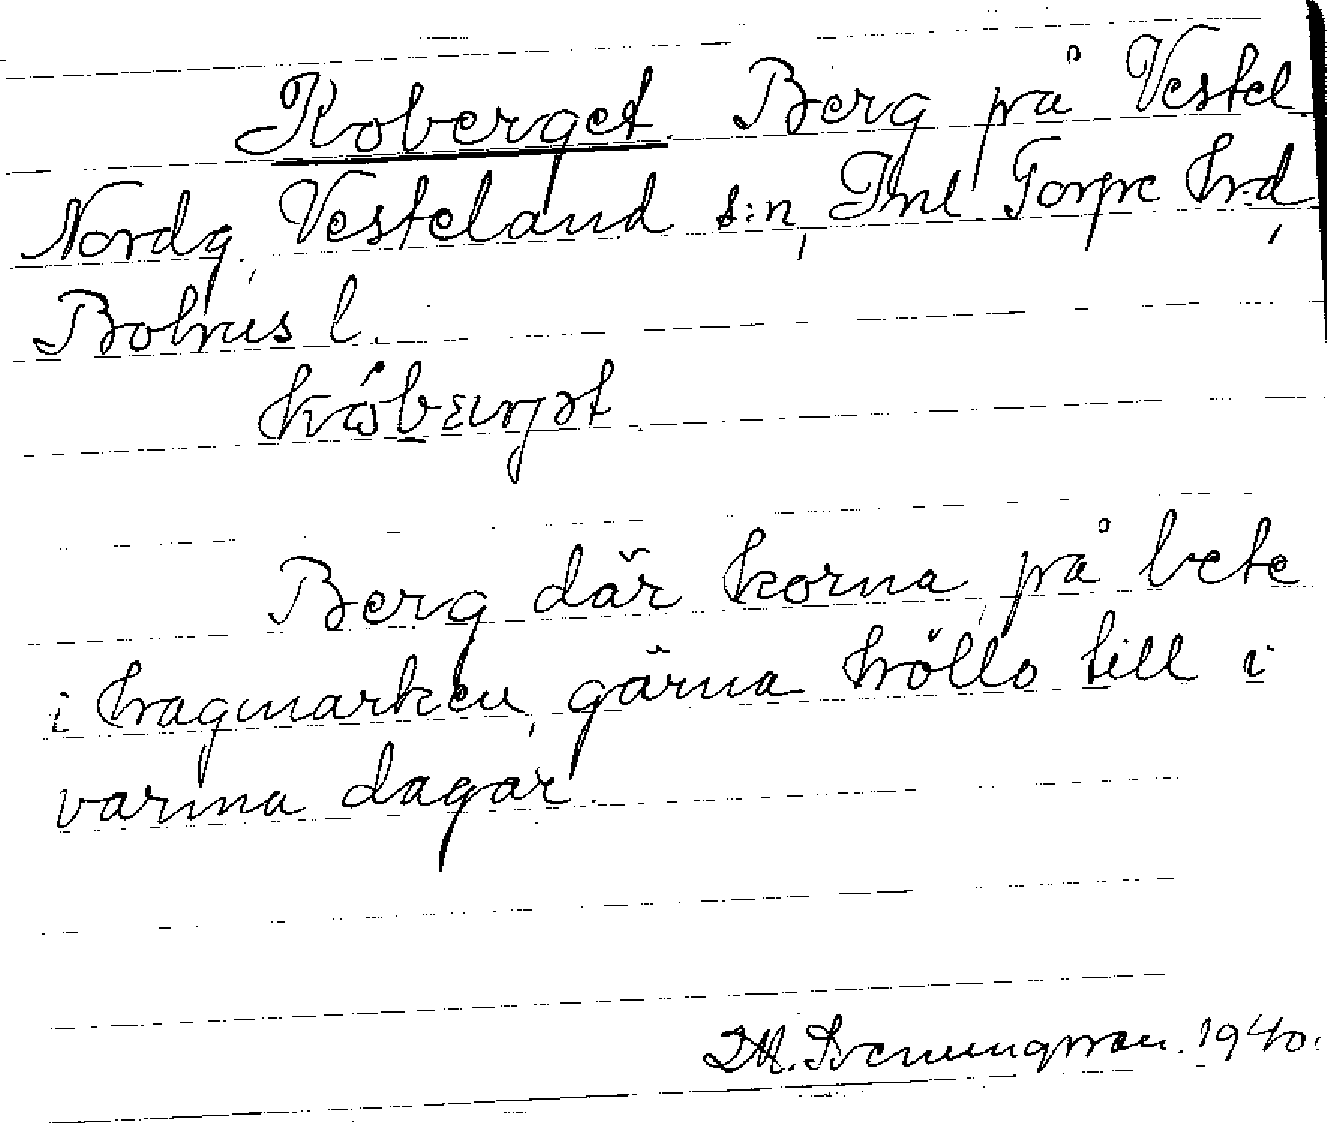 Koberget. Berg på Vestel
Nordg. Vesteland s:n, Inl Torpe hrd,
Bohus l.
Berg där korna på bete
i hagmarken, gärna höllo till i
varma dagar
M. Svenungsson. 1940.